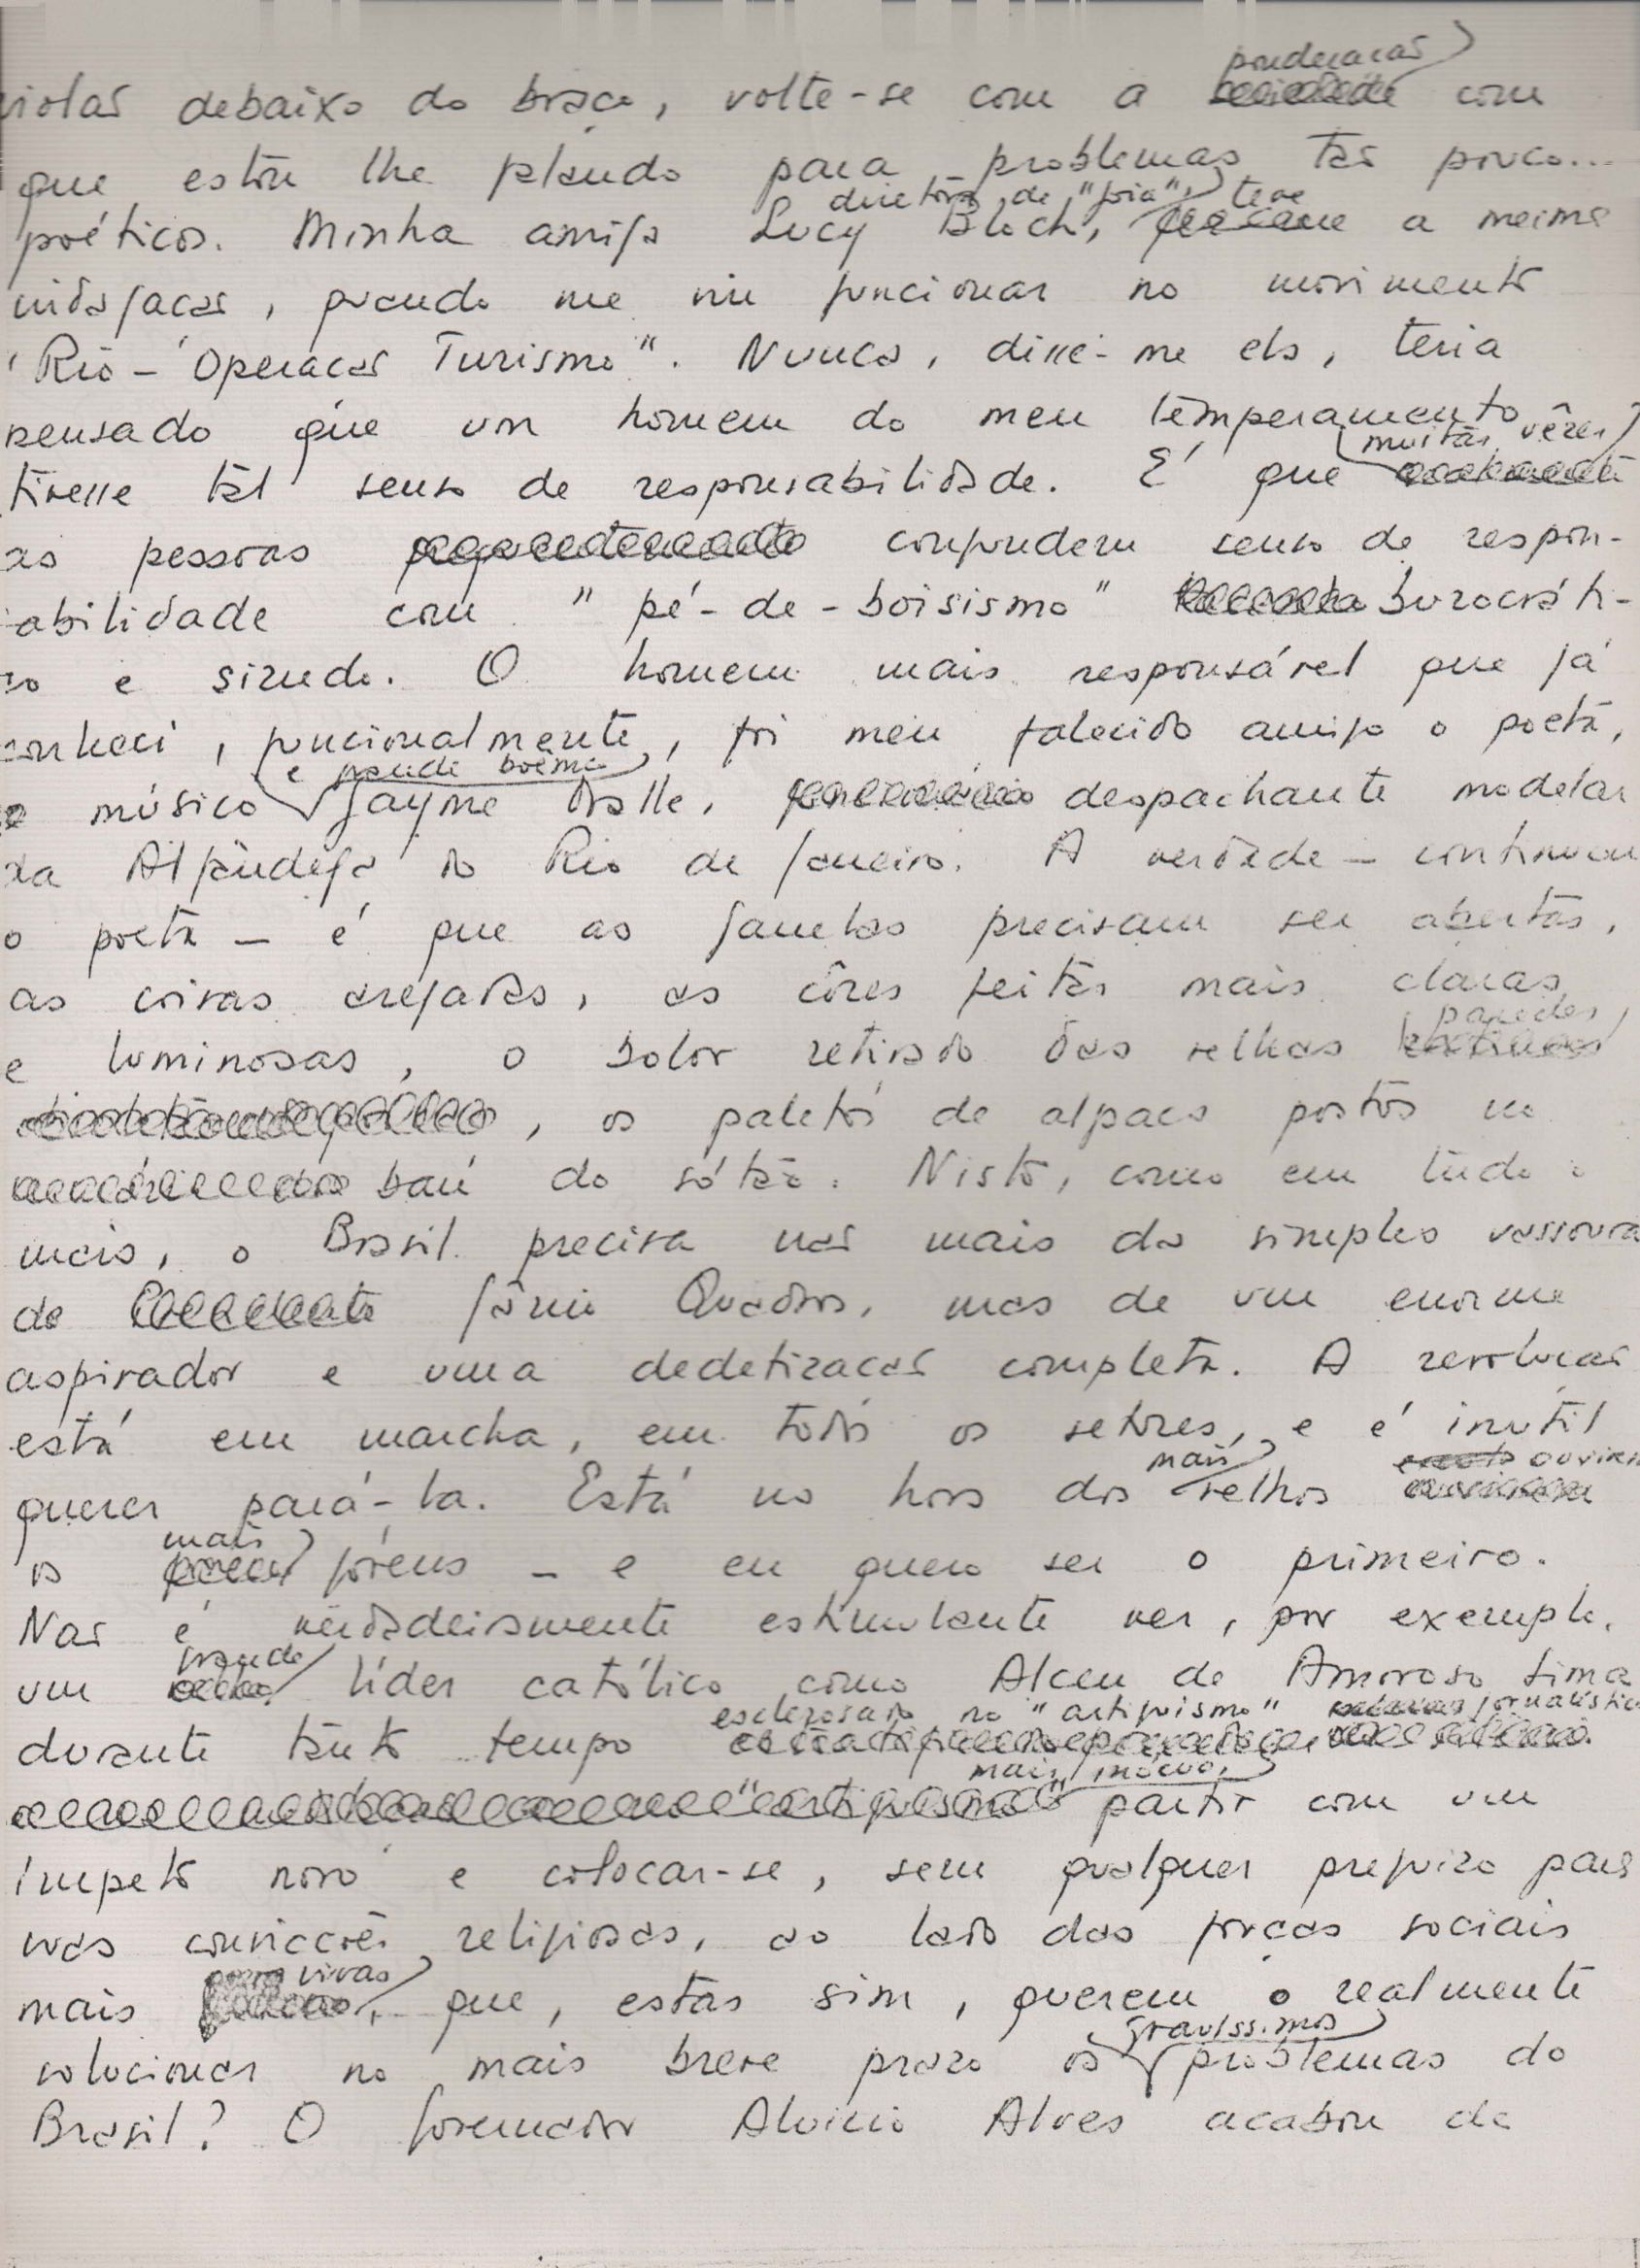 violas debaixo do braço, volte-se com a ponderação com
que estou lhe falando para problemas tão pouco...
poéticos. Minha amiga Lucy Bloch, diretora de "Joia", teve a mesma
indagação, quando me viu funcionar no movimento
"Rio - Operação Turismo". Nunca, disse-me ela, teria
pensado que um homem do meu temperamento
tivesse tal senso de responsabilidade. É que muitas vêzes
as pessoas confundem senso de respon-
sabilidade com "pé-de-boisismo" burocráti-
co e sizudo. O homem mais responsável que já
conheci, funcionalmente, foi meu falecido amigo o poeta,
e músico e grande boêmio Jayme Ovalle, despachante modelar
da Alfândega do Rio de Janeiro. A verdade - continuou
o poeta - é que as janelas precisam ser abertas,
as coisas arejadas, as côres feitas mais claras
e luminosas, o bolor retirado das velhas paredes,
, os paletós de alpaca postos no
baú do sótão. Nisto, como em tudo o
mais, o Brasil precisa não mais da simples vassoura
do Jânio Quadros, mas de um enorme
aspirador e uma dedetização completa. A revolução
está em marcha, em todos os setores, e é inútil
querer pará-la. Está na hora dos mais velhos ouvirem
os mais jóvens - e eu quero ser o primeiro.
Não é verdadeiramente estimulante ver, por exemplo,
um grande líder católico como Alceu de Amoroso Lima
durante tanto tempo esclerosado no "artiguismo" jornalístico
mais inócuo, partir com um
ímpeto novo e colocar-se, sem qualquer prejuizo para
suas convicções religiosas, ao lado das forças sociais
mais vivas, que, estas sim, querem realmente
solucionar no mais breve prazo os gravíssimos problemas do
Brasil? O governador Aluizio Alves acabou de